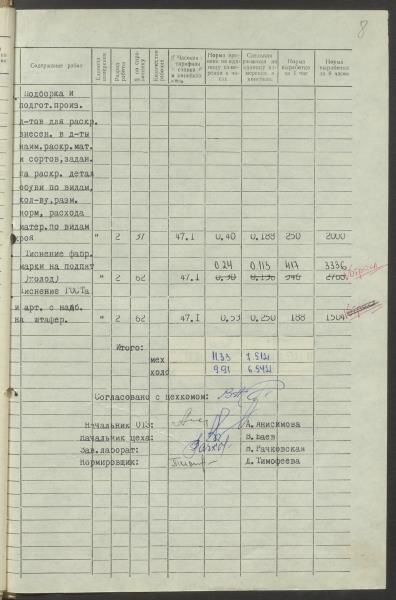 8
Содержание работ
Единица измерения
Разряд работы
Количество рабочих
Часовая тарифная ставка
Норма времени на единицу измерения в часах
Норма выработки за 1 час
Норма выработки за 8 часов
Подборка и
подгот.произ.
д-тов для раскр.
внесен. в д-ты
наим.раскр.мат.
и сортов,задан.
на раскр. детал
обуви по видам,
кол-ву,разм.
норм. расхода
матер.по видам
кроя " 2 31 47.1 0.40 0.188 250 2000
Тиснение фабр.
марки на подпят 0.24 0.113 417 3336
(холод) " 2 62 47.1 0.30 2768
Тиснение ГОСТа
и арт. с надб.
на штафер. " 2 62 47.1 0.53 0.250 188 1504
Итого:
мех 11.33
холо 9.91
Согласовано с цехкомом:
Начальник ОТЗ: А.Анисимова
Начальник цеха: В.Баев
Зав.лаборат: В.Рачковская
Нормировщик: Д.Тимофеева